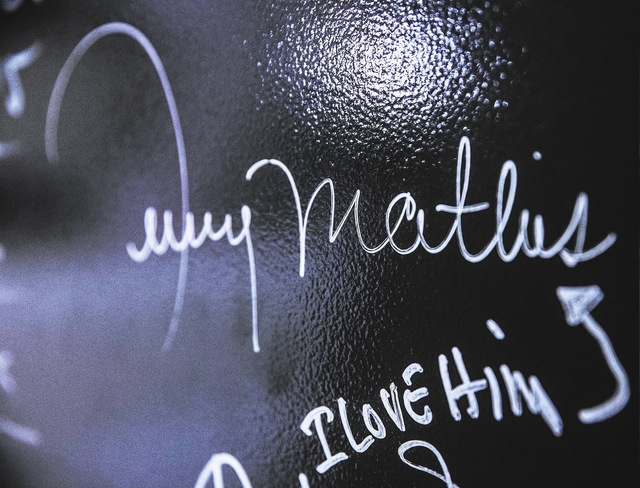 Jimmy Mathis
I LOVE Him